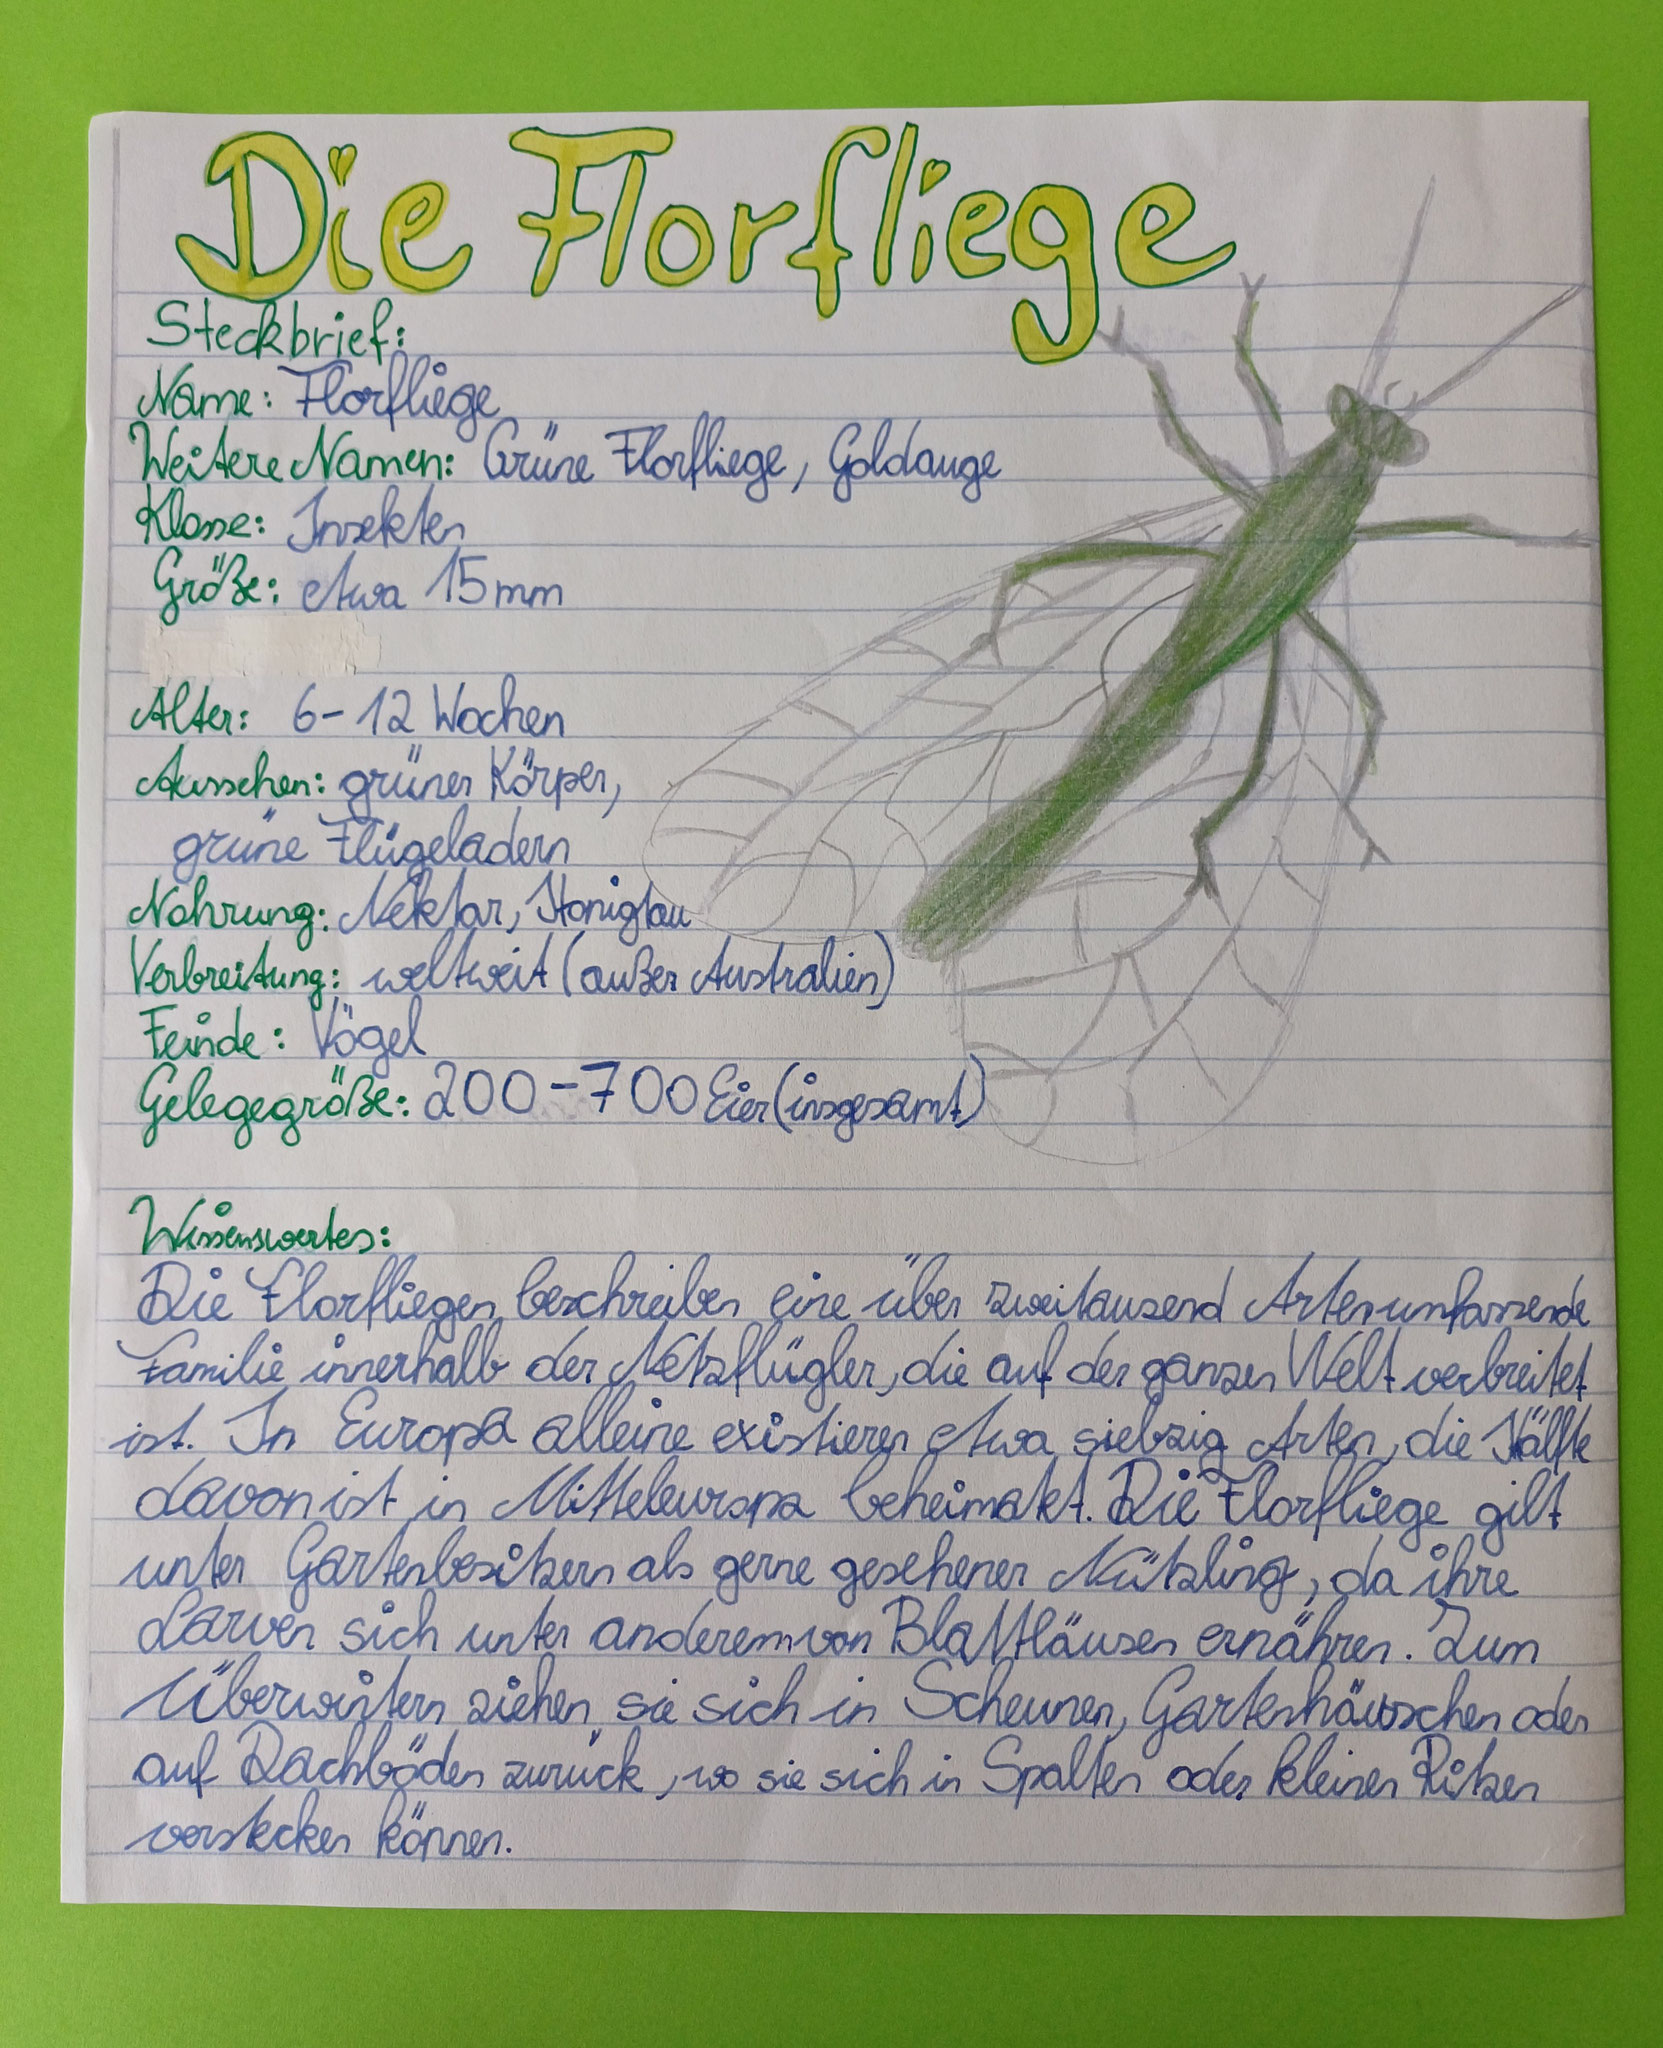 Die Florfliege
Steckbrief:
Name: Florfliege
Weitere Namen: Grüne Florfliege, Goldauge
Klasse: Insekten
Größe: etwa 15mm
Alter: 6-12 Wochen
Aussehen: grüner Körper,
grüne Flügeladern
Nahrung: Nektar, Honigtau
Verbreitung: weltweit (außer Australien)
Feinde: Vögel
Gelegegröße: 200-700 Eier (insgesamt)
Wissenswertes:
Die Florfliegen beschreiben eine über zweitausend Arten umfassende
Familie innerhalb der Netzflügler, die auf der ganzen Welt verbreitet
ist. In Europa alleine existieren etwa siebzig Arten, die Hälfte
davon ist in Mitteleuropa beheimakt. Die Florfliege gilt
unter Gartenbesitzern als gerne gesehener Nützling, da ihre
Larven sich unter anderem von Blattläusen ernähren. Zum
Überwintern ziehen sie sich in Scheunen, Gartenhäuschen oder
auf Dachböden zurück, wo sie sich in Spalten oder kleinen Ritzen
verstecken können.